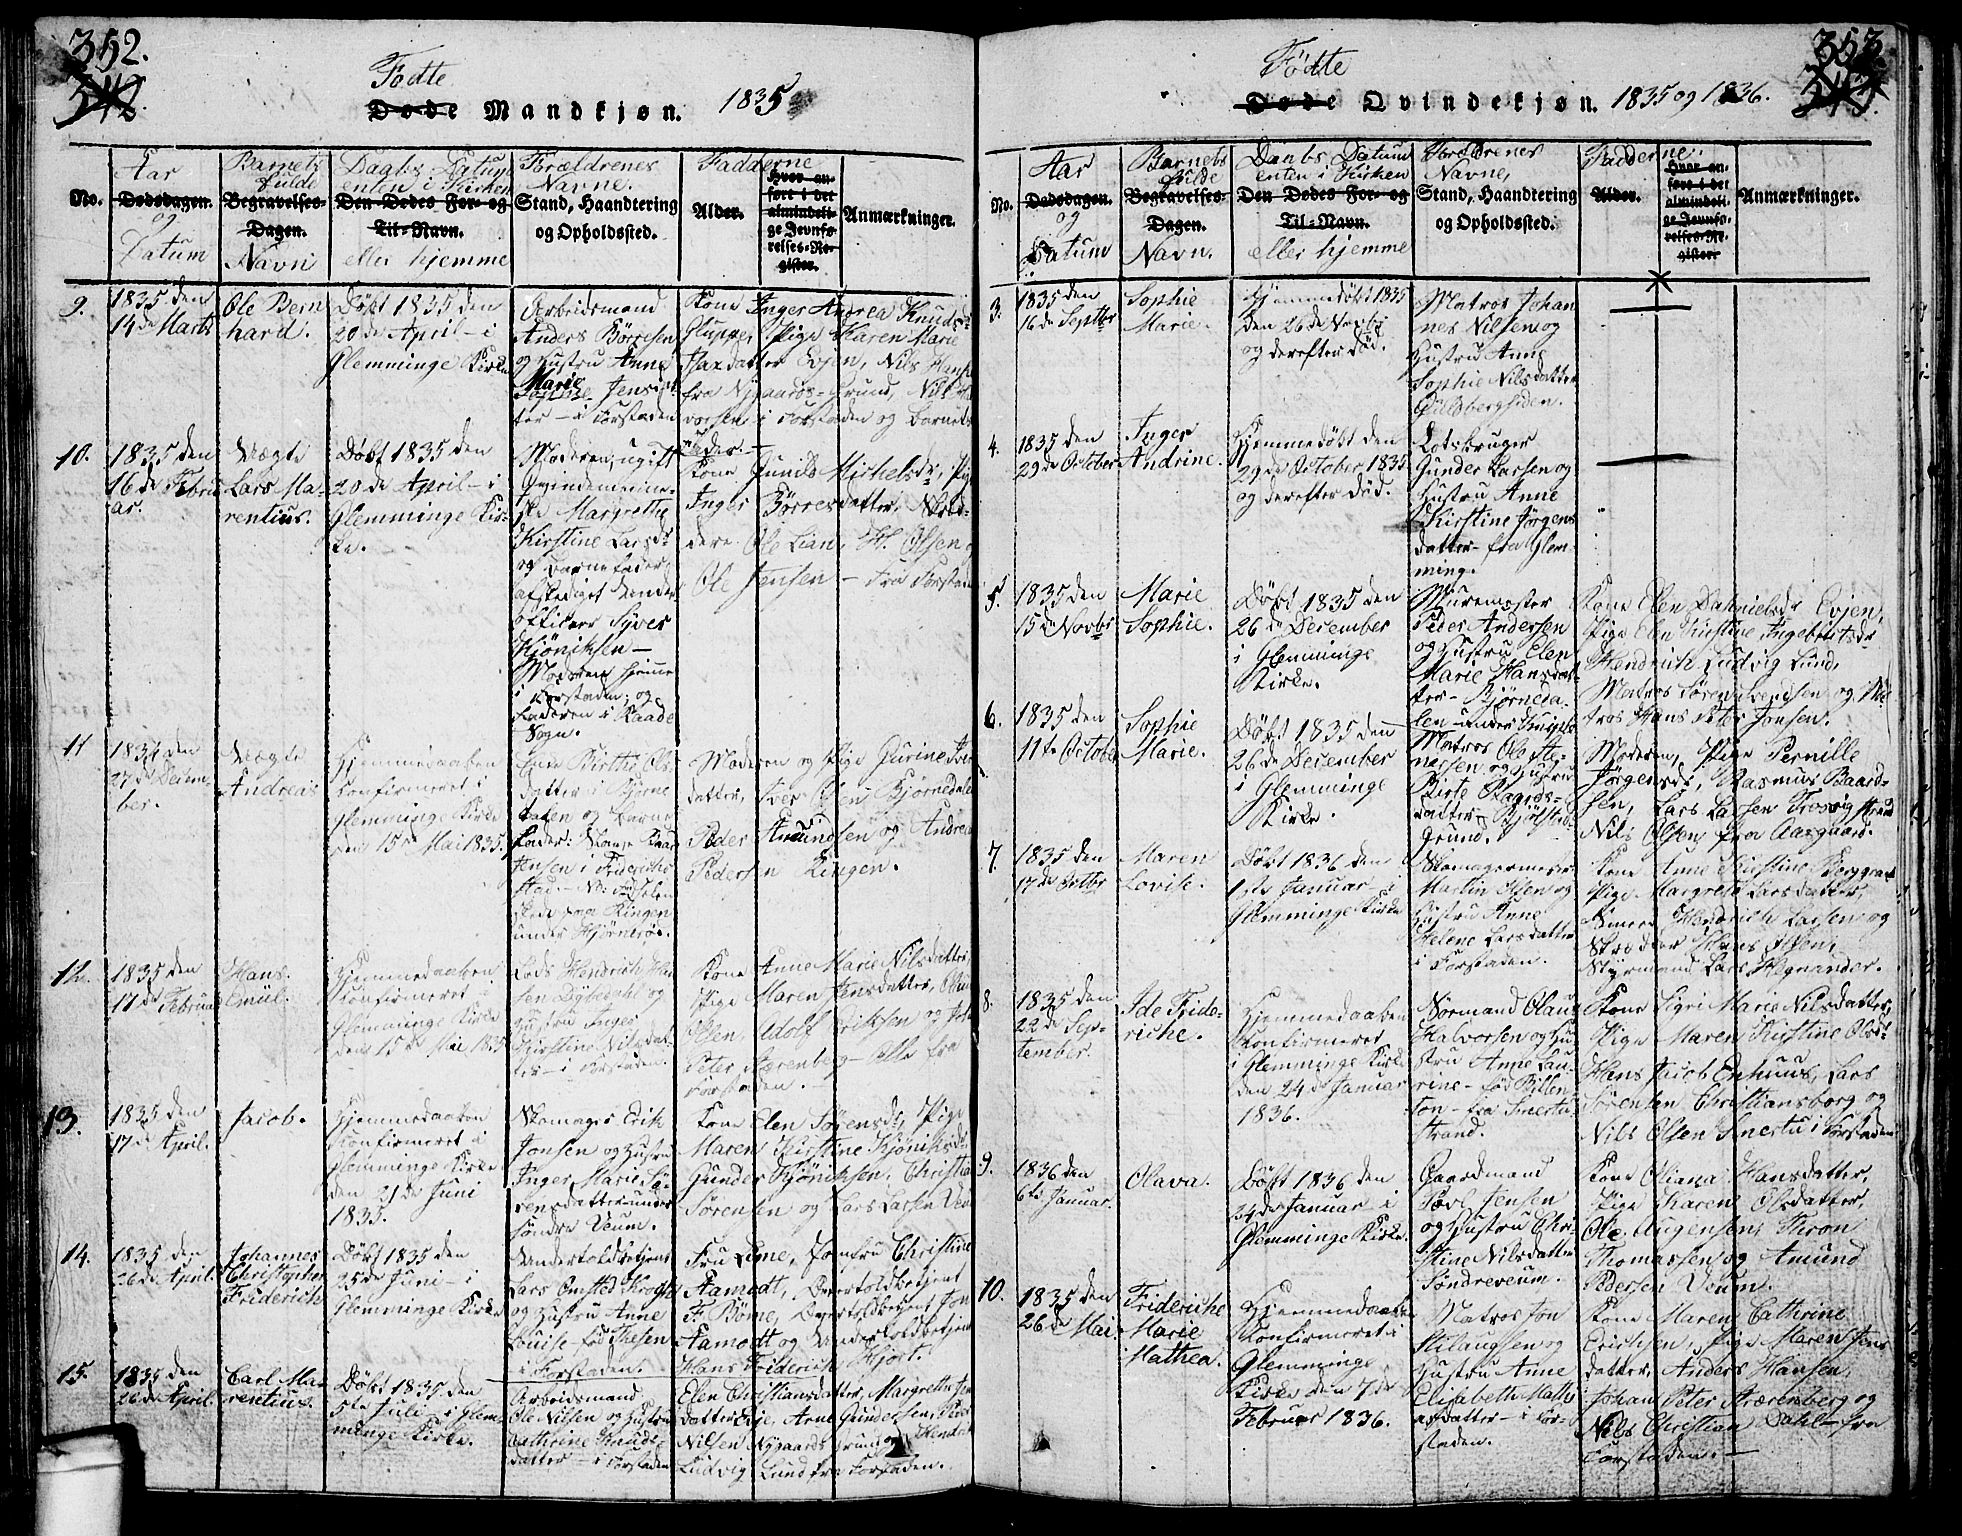 352.
342.
Födte
Döde Mandkjøn. 1835
No.
Aar
Dødsdagen.
og
Datum
Barnets
fulde
Begravelses-
Dagen.
Navn
Daabs Datum
enten i Kirken
Den Dødes For- og
Til-Navn.
eller hjemme
Forældrenes
Navne.
Stand, Haandtering
og Opholdssted.
Fadderne
Alder.
Hvor an-
ført i det
almindeli-
ge Jevnfø-
relses-Re-
gister.
Anmærkninger.
9.
1835 den
14de Marts
Ole Bern
hard.
Döbt 1835 den
20de April – i
Glemminge Kirke
Arbeidsmand
Anders Börresen
og Hustru Anne
Marie
Jensdat
ter – i Forstaden
Kone Inger Andrea Knudsd
Gluppe, Pige Karen Marie
datter Evjen, Nils Hans
fra Nygaards-Grund, Nils
i Forstaden og Barnets
Fader.
10.
1835 den
16de Febru
ar.
Uægte
Lars Ma-
rentius.
Döbt 1835 den
20de April – i
Glemminge Kir-
ke.
Moderen, ugift
Qvindemenne-
ske Margrethe
Kirstine Larsd
og Barnefader,
afskediget Under-
officeer Syver
Kjöniksen –
Moderen hjemme
i Forstaden; og
Faderen i Raade
Sogn.
Kone Gunild Michelsdr, Pige
Inger Börresdatter, Skræd-
dere Ole Lian, H. Olsen
Ole Jensen – fra Forstaden
11
1834 den
27de Decem-
ber.
Uægte
Andreas
Hjemmedaaben
konfirmeret i
Glemminge Kirke
den 15de Mai 1835.
Birthe Ols-
datter i Björne
dalen og Barne
fader:
Jensen i Friderichs
stad –
Ringen
under Hjörneröe.
Moderen og Pige Gurine Iver
datter, Iver Olsen Björnedalen
Peder Amundsen og Andreas
Pedersen Ringen.
12.
1835 den
11te Februar
Hans
Emiil.
Hjemmedaaben
konfirmeret i
Glemminge Kirke
den 15de Mai 1835
Lods Hendrich Han
sen Dybedahl og
Hustru Inger
Kirstine Nilsdat-
ter – i Forstaden.
Kone Anne Marie Nilsdatter,
Pige Maren Jensdatter,
Olsen, Adolf Eriksen og Joh
Peter Stærenberg – Alle fra
Forstaden.
13.
1835 den
17de April.
Jacob.
Hjemmedaaben
konfirmeret i
Glemminge Kirke
den 21de Juni
1835.
Skomager Erik
Jonsen og Hustru
Inger Marie Sö-
rensdatter under
Söndre Veum.
Kone Elen Sörensdr, Pige
Maren Kirstine Kjöniksdr
Gunder Kjöniksen, Christia
Sörensen og Lars Larsen Veu
14.
1835 den
26de April.
Johannes
Christopher
Friderich
Döbt 1835 den
25de Juni – i
Glemminge Kirke
Undertoldbetjent
Lars Omsted Krogh
og Hustru Anne
Louise – föd Thesen
i Forstaden.
Fru Lime, Jomfru Christine
Aamodt, Overtoldbetjent
F. Börne, Overtoldbetjent Jon
Aamodt og Undertoldbetjent
Hans Friderich Hjort.
15.
1835 den
26de April.
Carl Ma-
rentius.
Döbt 1835 den
5te Juli – i Glem-
minge Kirke.
Arbeidsmand
Ole Nilsen og Hustru
Cathrine Knuds-
datter – i Forstaden
Elen Christiansdatter, Margrethe
datter Evje, Arne Gundersen, Peder
Nilsen Nygaards Grund og Hendrich
Ludvig Lund fra Forstaden.
353.
343.
Födte
Døde Qvindekjøn. 1835 og 1836.
No.
Aar
Dødsdagen.
og
Datum
Barnets
fulde
Begravelses-
Dagen.
Navn.
Daabs Datum
enten i Kirken
Den Dødes For- og
Til-Navn.
eller hjemme
Forældrenes
Navne,
Stand, Haandtering
og Opholdssted.
Fadderne.
Alder.
Hvor an-
ført i det
almindeli-
ge Jevnfø-
relses-Re-
gister.
Anmærkninger.
3.
1835 den
16de Septbr
Sophie
Marie.
Hjemmedöbt 1835
den 26de Novbr
og derefter Död.
Matros Johan
nes Nilsen og
Hustru Anne
Sophie Nilsdatter
Guldbergsiden.
4.
1835 den
29de October
Inger
Andrine.
Hjemmedöbt den
29de October 1835
og derefter Död.
Lodsbruger
Gunder Larsen og
Hustru Anne
Kirstine Jörgens
datter – fra Glem-
ming.
5.
1835 den
15de Novbr
Marie
Sophie.
Döbt 1835 den
26de December
i Glemminge
Kirke.
Muremester
Peder Andersen
og Hustru Elen
Marie Hansdat-
ter – Björneda-
len – under
Kone Elen Daknielsdr Evjen,
Pige Elen Kirstine Ingebretsdr
Hendrich Ludvig Lund,
Matros Sören Svendsen og Ma-
tros Hans Peter Jonsen.
6.
1835 den
11te October
Sophie
Marie.
Döbt 1835 den
26de December
i Glemminge
Kirke.
Matros Ole
og Hustru
Birte
datter
Grund.
Moderen, Pige Pernille
Jörgensdr, Rasmus Baard-
sen, Lars Larsen Trosvig Strand
Nils Olsen fra Aasgaard.
7.
1835 den
17de Octbr
Maren
Lovise.
Döbt 1836 den
1ste Januar i
Glemminge Kirke
Skomagermester
Martin Olsen og
Hustru Anne
Helene Larsdatter
i Forstaden.
Kone Anne Kirstine
Pige Margrete Larsdatter,
Hendrich Larsen og
Skrædder Hans Olsen,
Styrmand Lars Hegnander.
8.
1835 den
22de Sep-
tember.
Ide Fride-
riche.
Hjemmedaaben
konfirmeret
i Glemminge Kirke
den 24de Januar
1836.
Normand Olaus
Halvorsen og Hu
stru Anne Lau-
rine – föd Billen-
ton – fra Smertu
strand.
Kone Sigri Marie Nilsdatter,
Pige Maren Kirstine Olsdr
Hans Jacob Enhuus, Lars
Sörensen Christiansborg og
Nils Olsen Smertu i Forstaden
9.
1836 den
6te Januar.
Olava.
Döbt 1836 den
24de Januar i
Glemminge Kirke.
Gaardmand
Povl Jensen
og Hustru Chri-
stine Nilsdatter
Söndreveum.
Kone Oliana Hansdatter,
Pige Karen Olsdatter,
Ole Augensen, Thron
Thomassen og Amund
Pedersen Veum.
10.
1835 den
26de Mai.
Frideriche
Marie
Mathea.
Hjemmedaaben
konfirmeret i
Glemminge
Kirke den 7de
Februar 1836.
Matros Jon
Milaugsen og
Hustru Anne
Elisabeth Mathi
asdatter – i For-
staden.
Kone Maren Cathrine
Erichsen, Pige Maren Jens
datter, Anders Hansen,
Johan Peter Stærenberg og
Nils Christian Dahl – fra
Forstaden. –